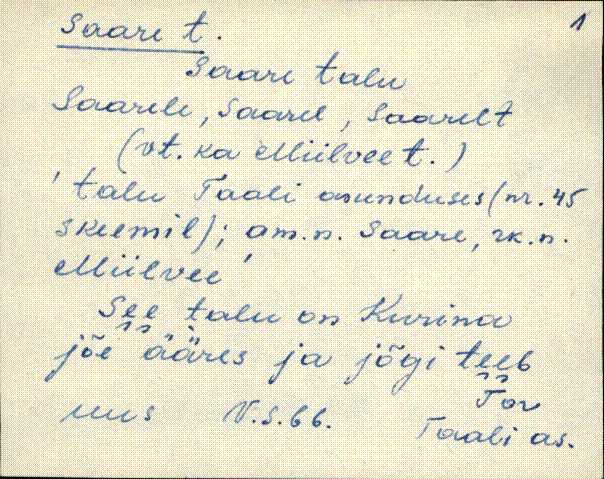 1
Saare t.
Saare talu
Saarele, Saarel, Saarelt
(vt. ka Miilvee t.)
'talu Taali asunduses (nr. 45
skeemil); am.n. Saare, rk.n.
Miilvee'
See talu on Kurina
jõe ääres ja jõgi teeb
uus V.S. 66. Tor
Taali as.